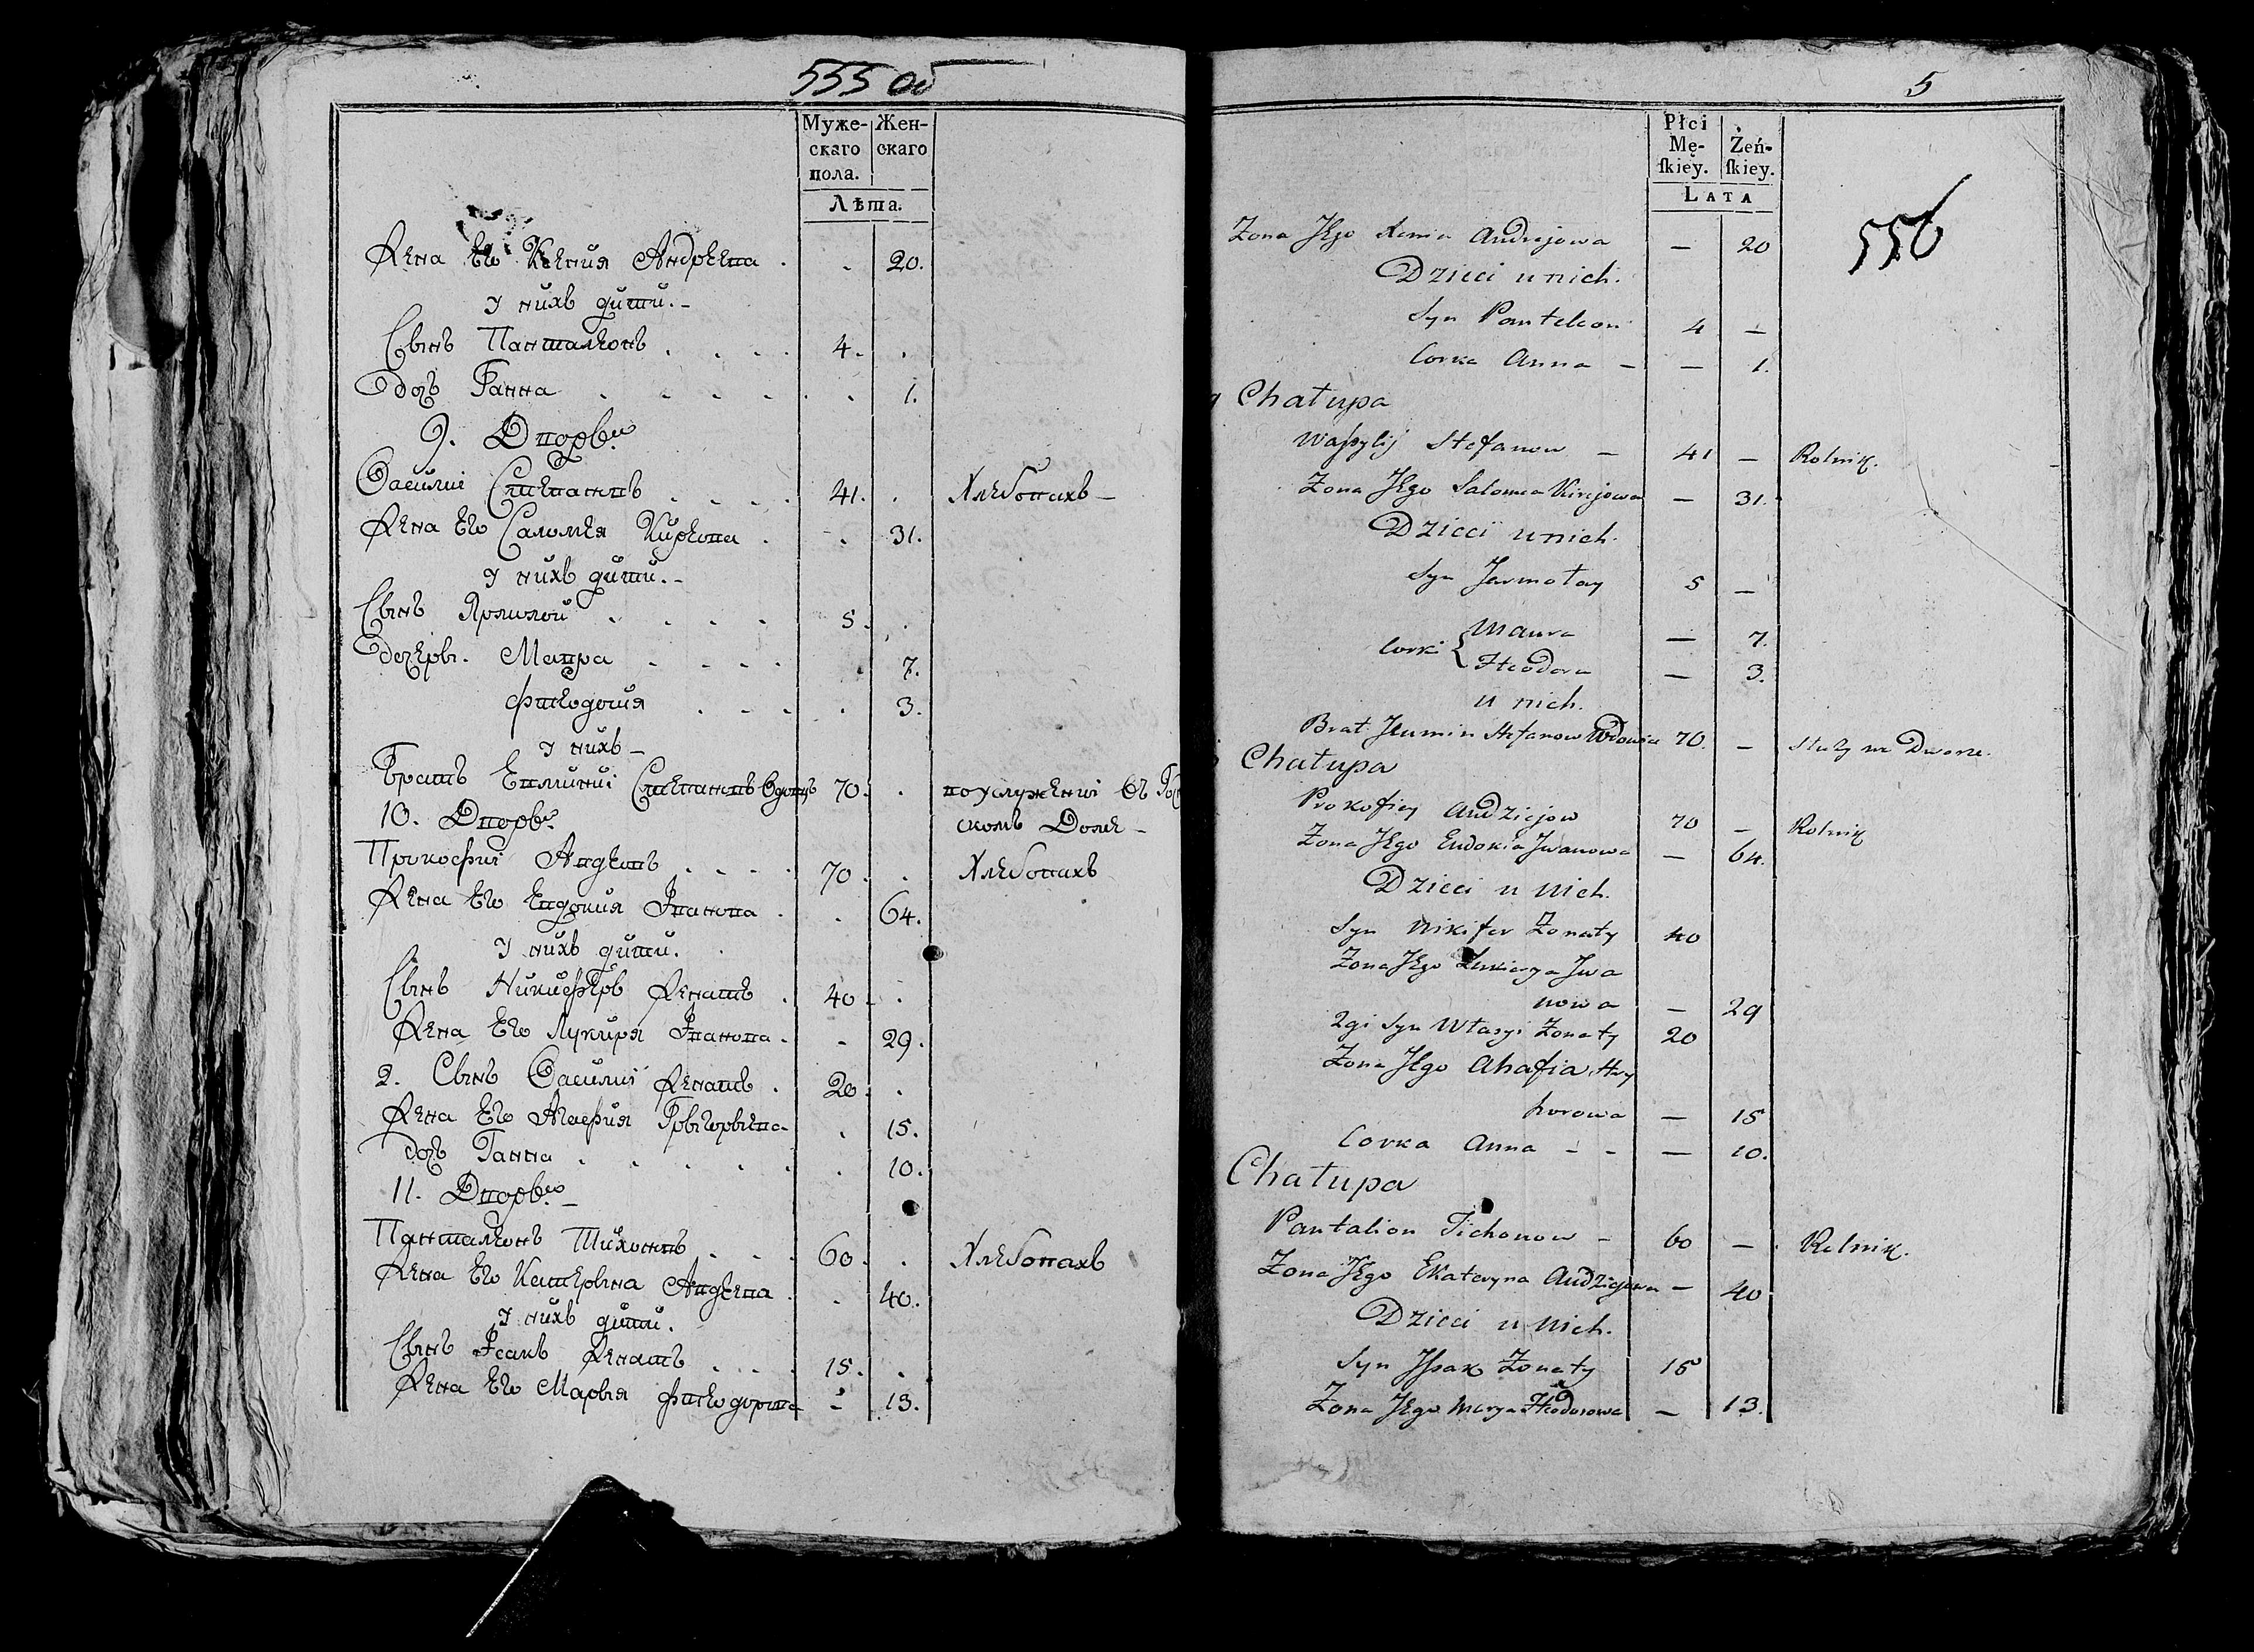 555 об
Муже- Жен-
скаго скаго
пола.
Лѣта.
Жена Его Ксения Андреева . . 20.
У нихъ дити. -
Сынъ Панталеонъ . . . . 4. .
Дочь Ганна . . . . . . 1.
9. Дворъ
Василиі Степановъ . . . . 41. . Хлебопахъ -
Жена Его Саломея Киреова . . 31.
У нихъ дити. -
Сынъ Ярмолой . . . . 5. .
Дочеры. Мавра . . . . . 7.
Фтеодосия . . . . 3.
У нихъ -
Братъ Евминиі Степановъ Вдовцъ 70. . по услужениі въ Гос
10. Дворъ. скомъ Доме -
Прокофиі Авдеевъ . . . . 70. . Хлебопахъ
Жена Его Евдокия Иванова . . 64.
У нихъ дити.
Сынъ Никиферъ Женатъ . 40. .
Жена Его Лукиря Иванова . - 29.
2. Сынъ Василиі Женатъ . 20. .
Жена Его Агафия Грыгорыева . 15.
дочь Ганна . . . . . . 10.
11. Дворъ. -
Панталеонъ Тихоновъ . . . 60. . Хлебопахъ
Жена Его Катерына Авдеева . . 40.
У нихъ дити.
Сынъ Исакъ Женатъ . . . . 15. .
Жена Его Марыя Фтеодорова - 13.
5
Płci
Mę- Żeń-
ſkiey. ſkiey.
LATA
556
Zona Jego Xenia Andrejowa — 20
Dzieci u nich.
Syn Panteleon 4 —
Corka Anna — — 1.
Chałupa
Waſsylij Stefanow — 41 — Rolnik.
Zona Jego Salomea Kirejowa — 31.
Dzieci u nich.
Syn Jarmołay 5 —
Corki { Maura — 7.
Fteodora — 3.
u nich.
Brat Jeumin Stefanow Wdowiec 70. — służy we Dworze.
Chałupa
Prokofiey Audziejow 70 — Rolnik
Zona Jego Eudokia Jwanowa — 64.
Dzieci u nich.
Syn Nikifer Zonaty 40
Zona Jego Lukierya Jwa
nowa — 29
2gi Syn Własyi Zonaty 20
Zona Jego Ahafia Hry
horowa — 15
Corka Anna - - — 10.
Chałupa
Pantalion Tichonow - 60 — Rolnik.
Zona Jego Ekateryna Audziejowa — 40
Dzieci u nich.
Syn Jſsak Zonaty 15
Zona Jego Marya Fteodorowa — 13.